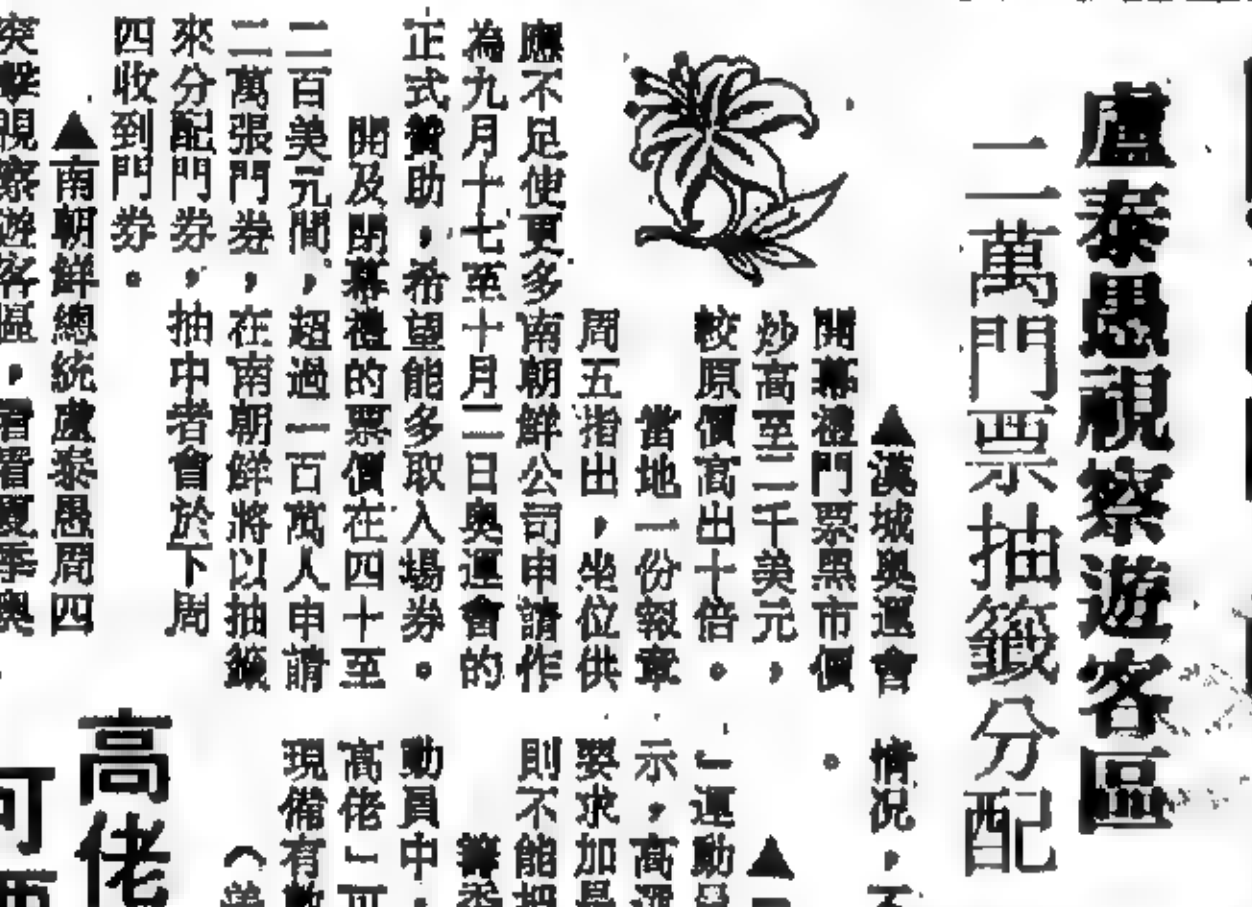 盧泰愚視察遊客區
二萬門票抽籤分配
▲漢城奧運會
開幕禮門票黑市價
炒高至二千美元，
校原價高出十倍。
當地一份報章
周五指出，坐位供
應不足使更多南朝鮮公司申請作
為九月十七至十月二日奧運會的
正式贊助，希望能多取入場券。
開及閉幕禮的票價在四十至
二百美元間，超過一百萬人申請
二萬張門券，在南朝鮮將以抽籤
來分配門券，抽中者會於下周
四收到門券。
▲南朝鮮總統盧泰愚周四
突擊視察遊客區，看看夏季奧
情況，不
。
▲一
」運動員
示，高
要求加
則不能
動員中，
高佬」可
現備有
高佬